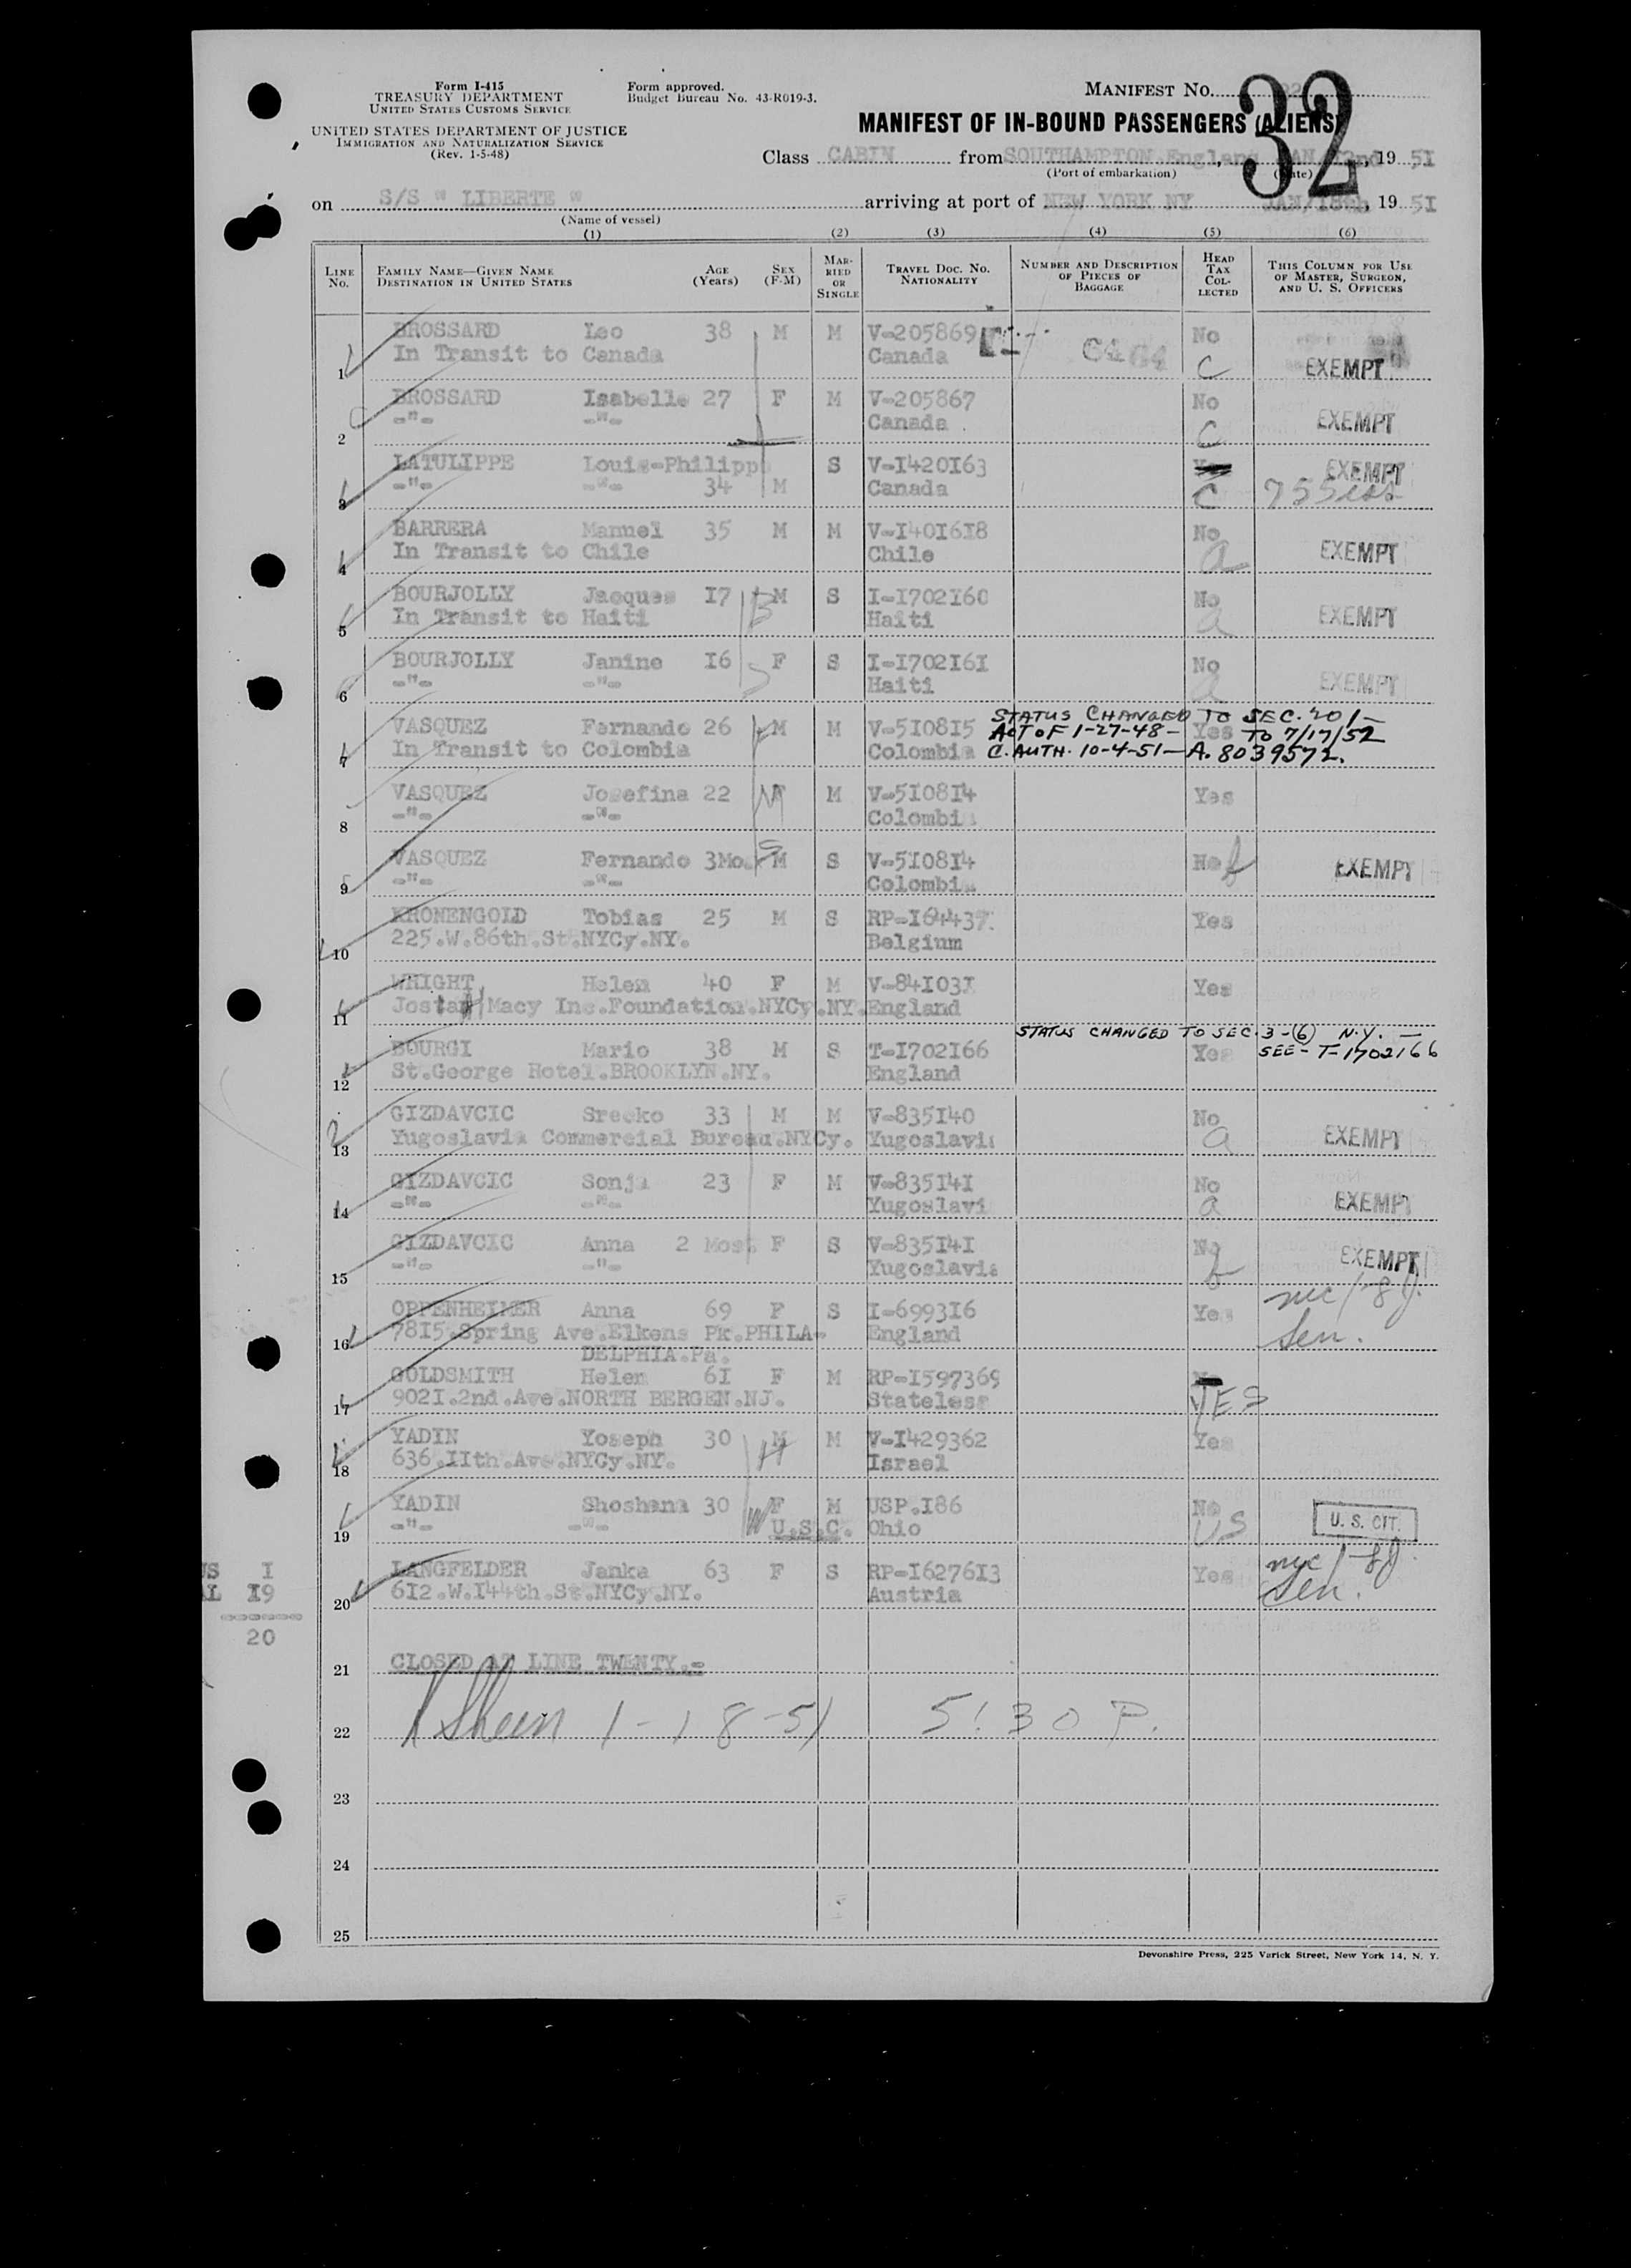 Form I-415
TREASURY DEPARTMENT
UNITED STATES CUSTOMS SERVICE
UNITED STATES DEPARTMENT OF JUSTICE
IMMIGRATION AND NATURALIZATION SERVICE
(Rev. 1-5-48)
Form approved.
Budget Bureau No. 43-R019-3.
MANIFEST NO.
32
MANIFEST OF IN-BOUND PASSENGERS (ALIENS)
Class CABIN from SOUTHAMPTON.England, JAN 2nd, 19 51
(Port of embarkation) (Date)
on S/S " LIBERTE " arriving at port of NEW YORK NY JAN/18th, 19 51
(Name of vessel)
(1) (2) (3) (4) (5) (6)
LINE NO.
FAMILY NAME—GIVEN NAME
DESTINATION IN UNITED STATES
AGE (Years)
SEX (F-M)
MARRIED OR SINGLE
TRAVEL DOC. NO.
NATIONALITY
NUMBER AND DESCRIPTION OF PIECES OF BAGGAGE
HEAD TAX COLLECTED
THIS COLUMN FOR USE OF MASTER, SURGEON, AND U. S. OFFICERS
BROSSARD Leo 38 M M V-205869 No
1 In Transit to Canada Canada C EXEMPT
BROSSARD Isabelle 27 F M V-205867 No
2 -"- -"- Canada C EXEMPT
LATULIPPE Louis-Philipp S V-1420163 EXEMPT
3 -"- -"- 34 M Canada C
BARRERA Manuel 35 M M V-1401618 No
4 In Transit to Chile Chile a EXEMPT
BOURJOLLY Jacques 17 M S I-1702160 No
5 In Transit to Haiti Haiti a EXEMPT
BOURJOLLY Janine 16 F S I-1702161 No
6 -"- -"- Haiti a EXEMPT
STATUS CHANGED TO SEC. 201-
VASQUEZ Fernando 26 M M V-510815 ACT OF 1-27-48- Yes TO 7/17/52
7 In Transit to Colombia Colombia C. AUTH. 10-4-51- A. 8039572.
VASQUEZ Josefina 22 M V-510814 Yes
8 -"- -"- Colombia
VASQUEZ Fernando 3Mos M S V-510814 No EXEMPT
9 -"- -"- Colombia
KRONENGOLD Tobias 25 M S RP-164437. Yes
10 225.W.86th.St.NYCy.NY. Belgium
WRIGHT Helen 40 F M V-841031 Yes
11 Macy Inc.Foundation.NYCy.NY. England
STATUS CHANGED TO SEC. 3-(6) N.Y. —
BOURGI Mario 38 M S T-1702166 Yes SEE- T-1702166
12 St.George Hotel.BROOKLYN.NY. England
GIZDAVCIC Srecko 33 M M V-835140 No
13 Yugoslavia Commercial Bureau.NYCy. Yugoslavia a EXEMPT
GIZDAVCIC Sonja 23 F M V-835141 No
14 -"- -"- Yugoslavi a EXEMPT
GIZDAVCIC Anna 2 Mos. F S V-835141 No
15 -"- -"- Yugoslavia EXEMPT
OPPENHEIMER Anna 69 F S I-699316 Yes
16 7815.Spring Ave.Elkens Pk.PHILA- England
DELPHIA.Pa.
GOLDSMITH Helen 61 F M RP-1597369
17 9021.2nd.Ave.NORTH BERGEN.NJ. Stateless YES
YADIN Yoseph 30 M M V-1429362 Yes
18 636.11th.Ave.NYCy.NY. H Israel
YADIN Shoshana 30 F M USP.186 No
19 -"- -"- W U.S.C. Ohio US U. S. CIT.
LANGFELDER Janka 63 F S RP-1627613 Yes
20 612.W.144th.St.NYCy.NY. Austria
US 1
AL 19
20
21 CLOSED AT LINE TWENTY.-
22 1-18-51 5:30 P.
23
24
25
Devonshire Press, 225 Varick Street, New York 14, N. Y.